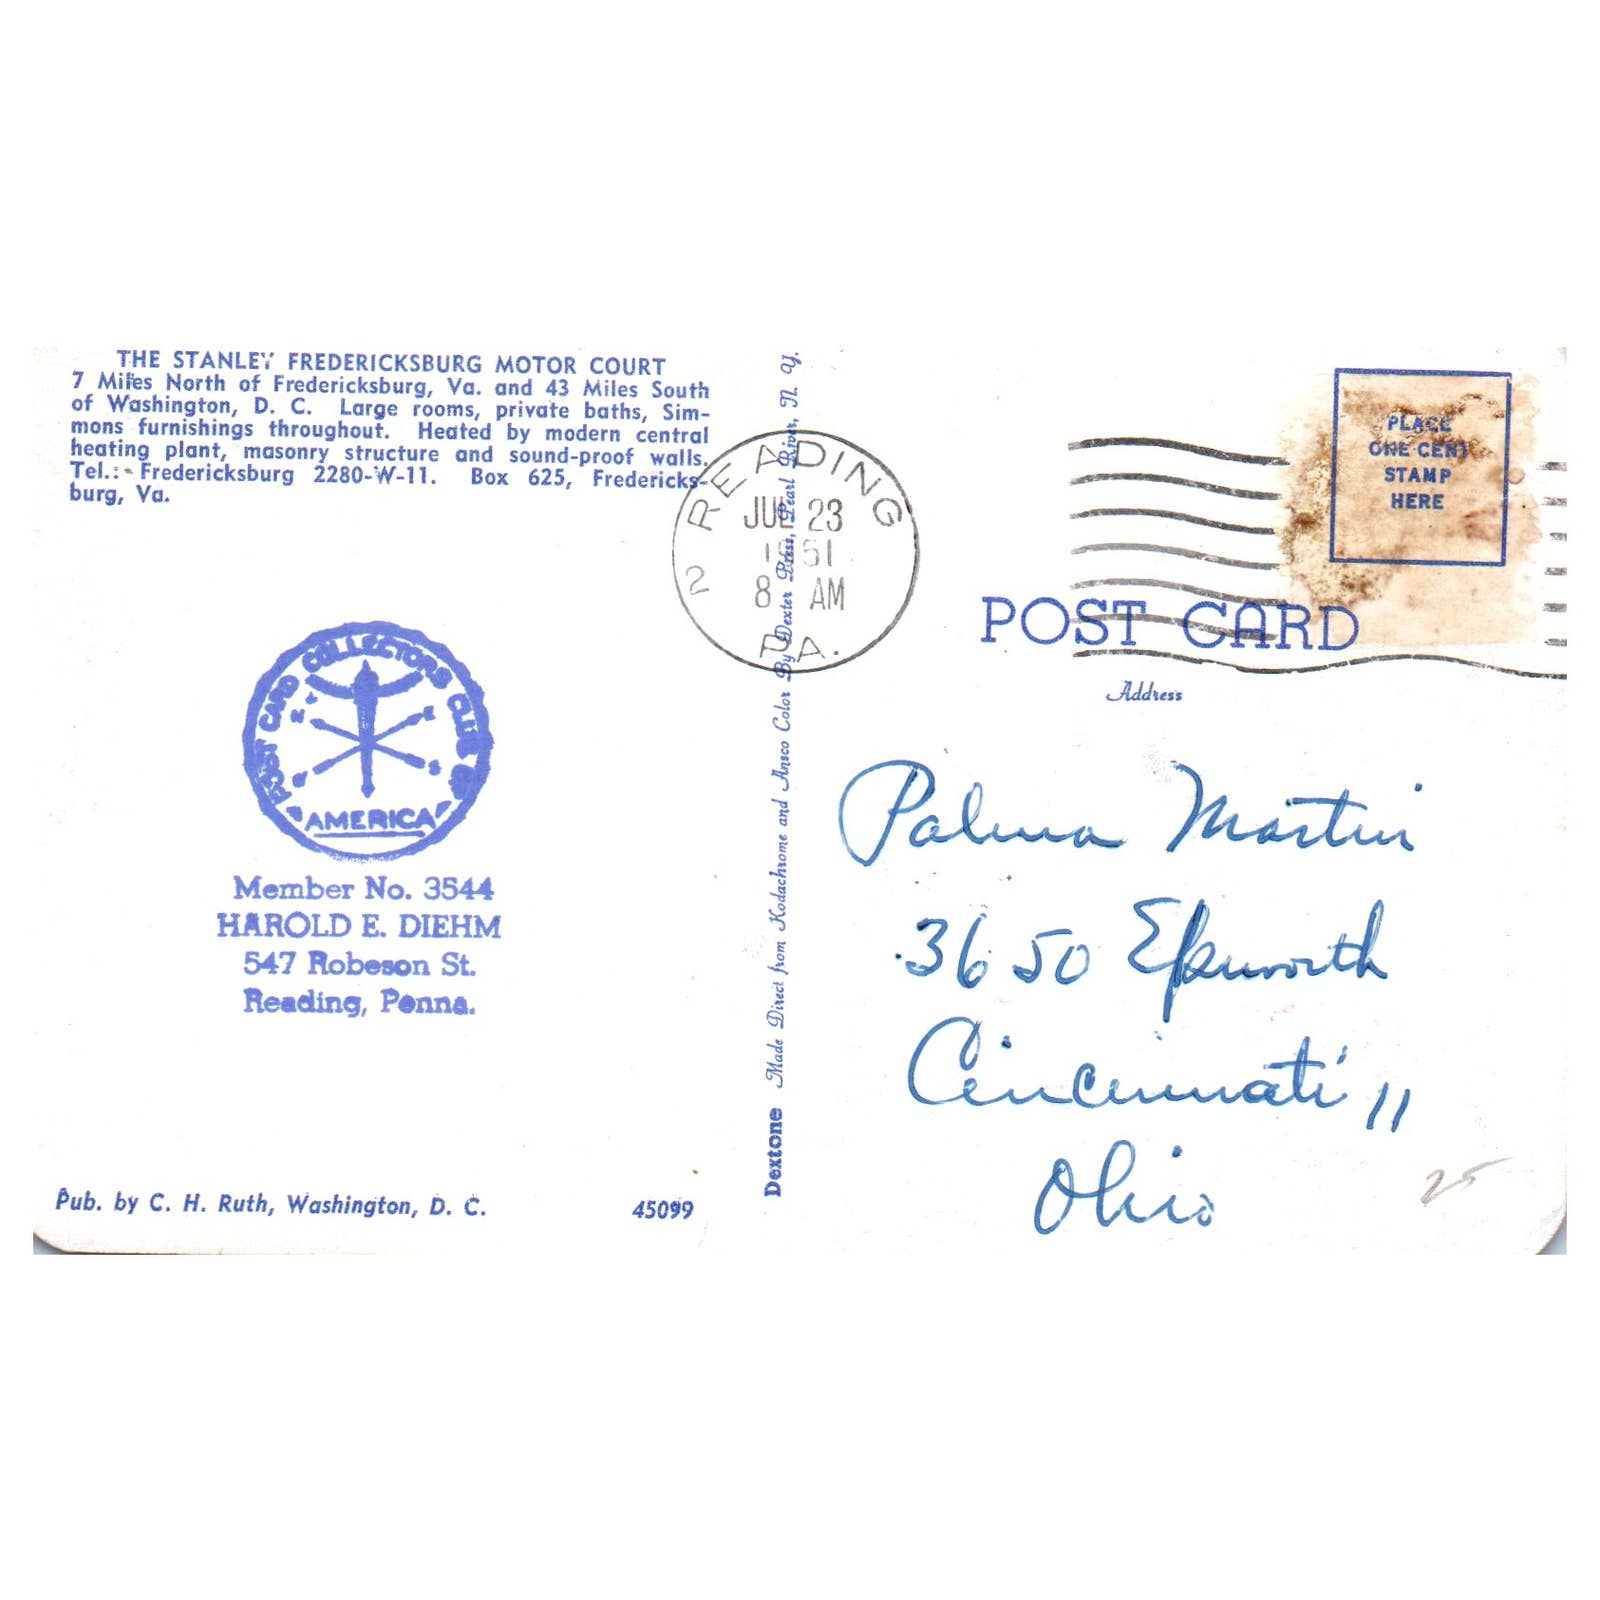 THE STANLEY FREDERICKSBURG MOTOR COURT
7 Miles North of Fredericksburg, Va. and 43 Miles South
of Washington, D. C. Large rooms, private baths, Sim-
mons furnishings throughout. Heated by modern central
heating plant, masonry structure and sound-proof walls.
Tel.: Fredericksburg 2280-W-11. Box 625, Fredericks-
burg, Va.
POST CARD COLLECTORS CLUB OF
AMERICA
Member No. 3544
HAROLD E. DIEHM
547 Robeson St.
Reading, Penna.
Pub. by C. H. Ruth, Washington, D. C.
45099
Dextone Made Direct from Kodachrome and Ansco Color By Dexter Press, Pearl River, N. Y.
READING
2
JUL 23
1951
8 AM
PA.
PLACE
ONE CENT
STAMP
HERE
POST CARD
Address
Palma Martin
3650 Epworth
Cincinnati 11
Ohio
25